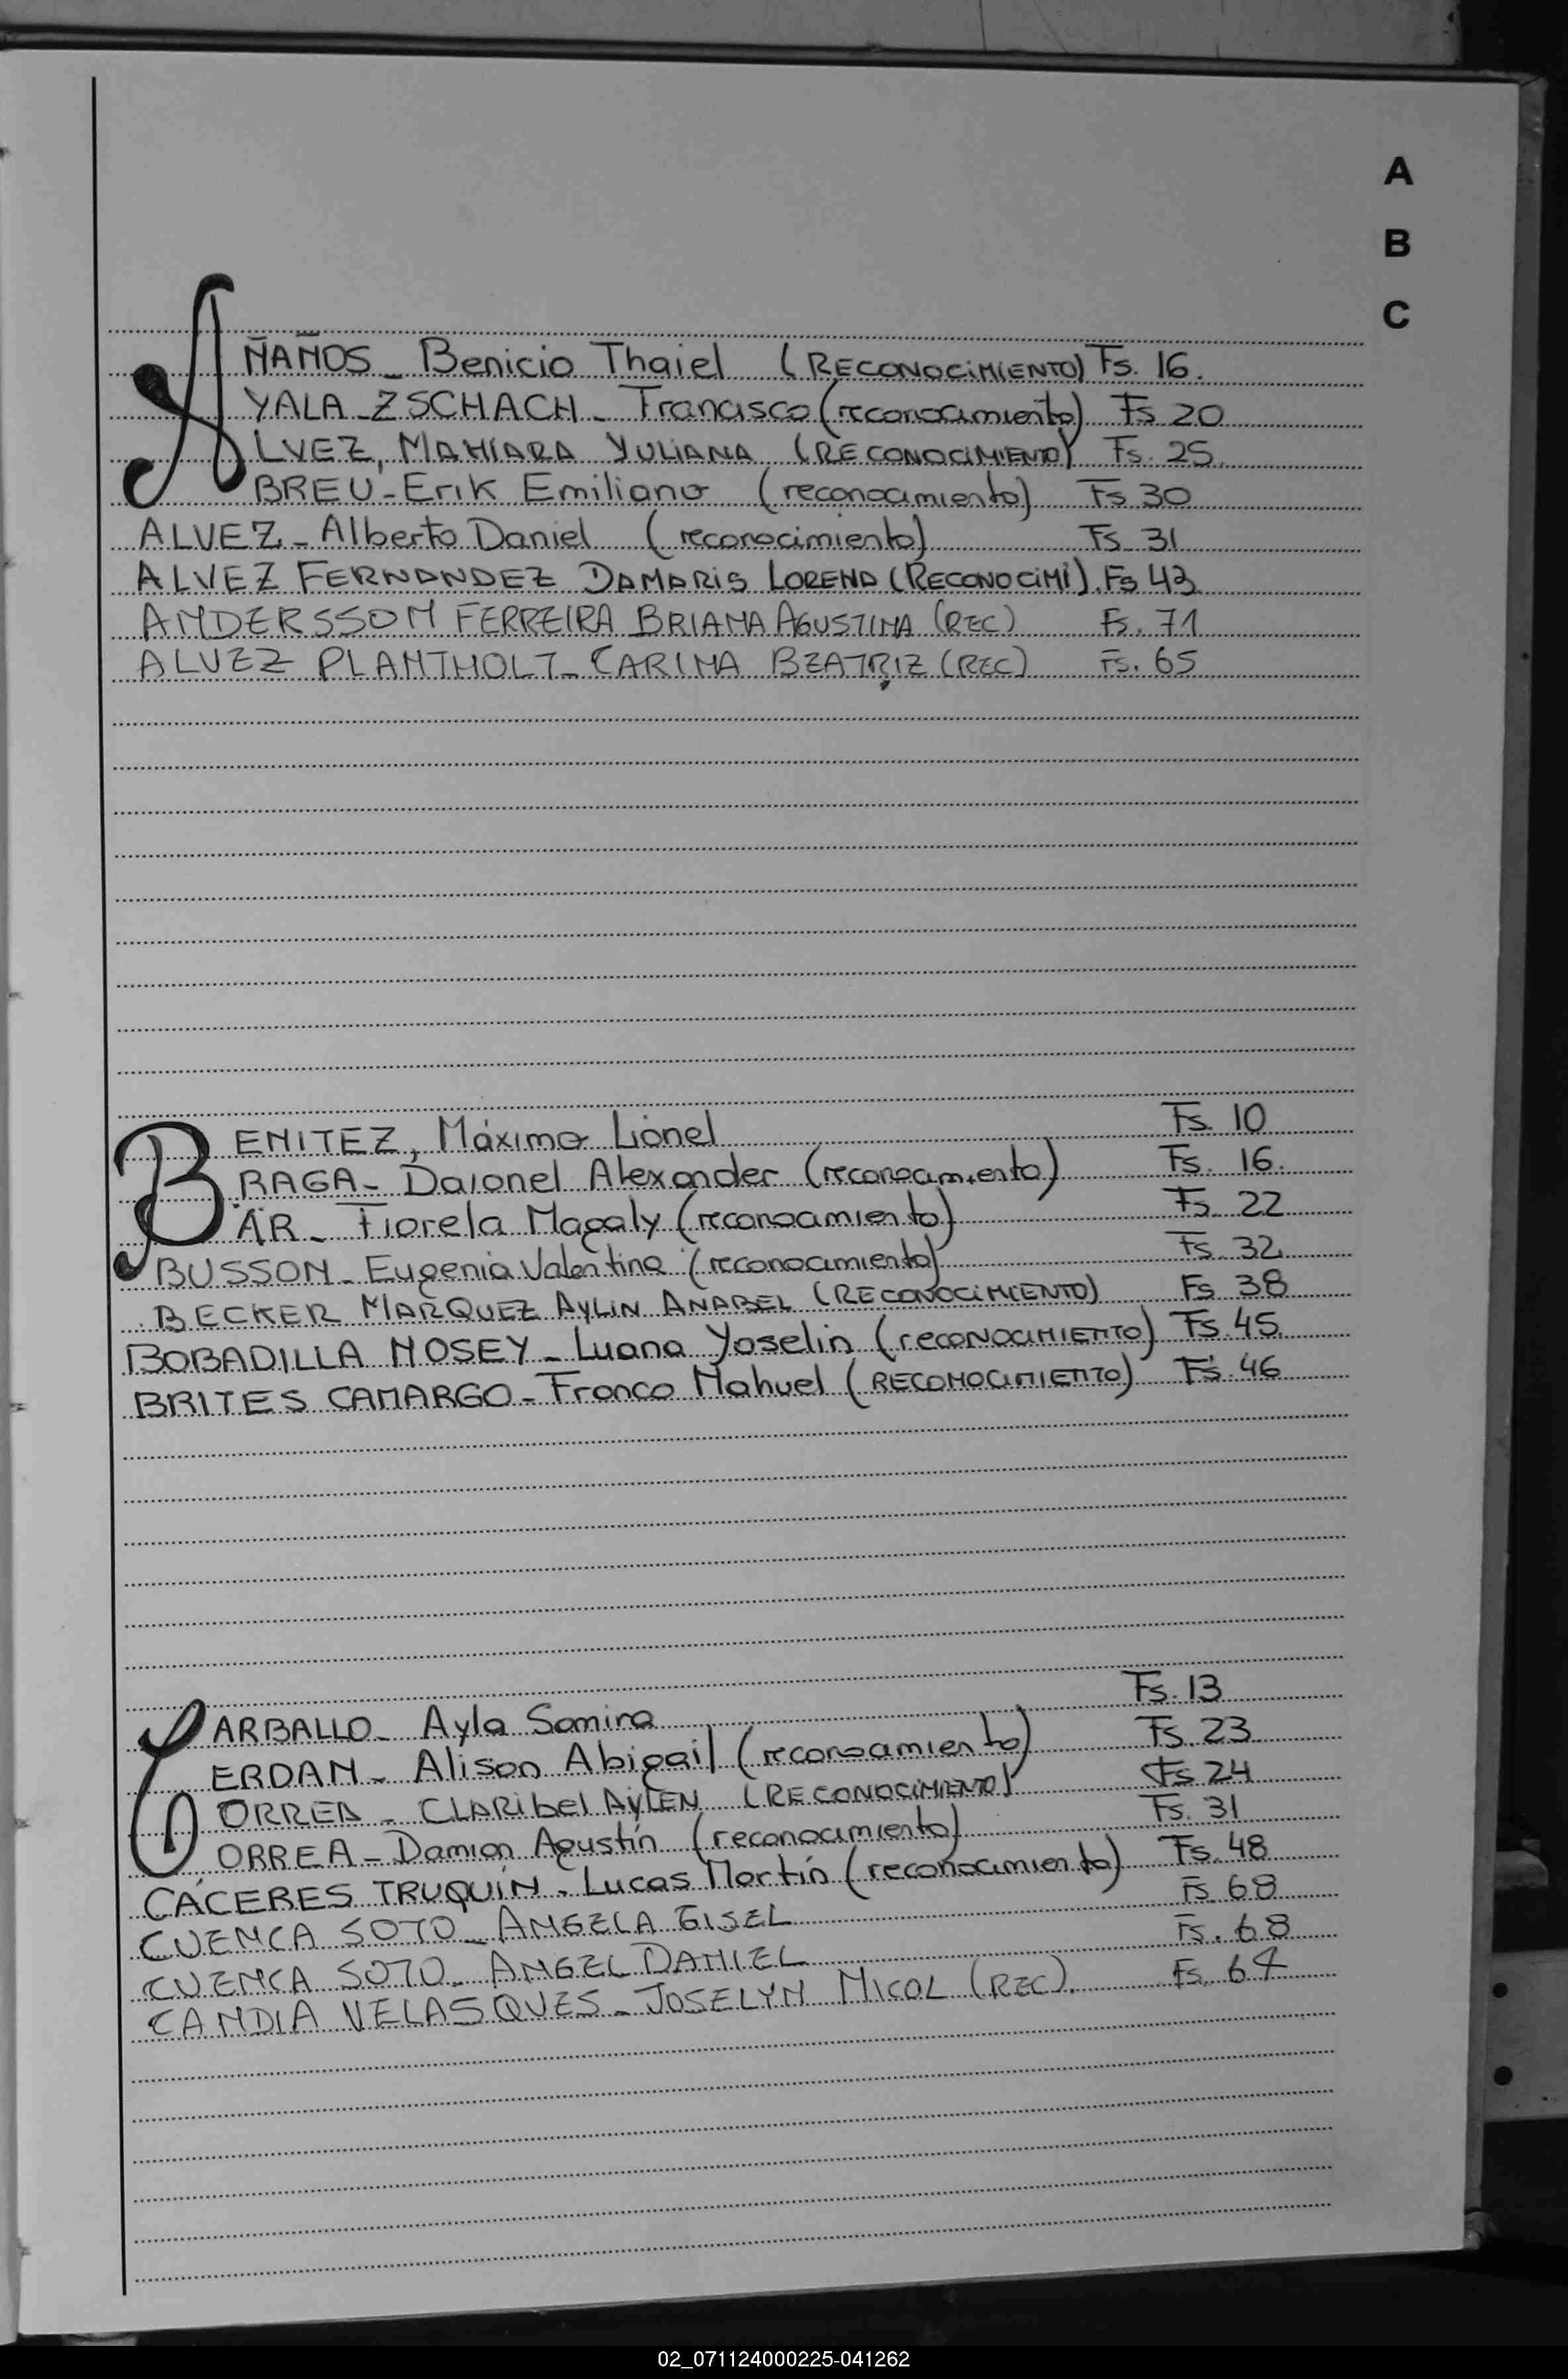 A
B
C
AÑAÑOS - Benicio Thaiel (RECONOCIMIENTO) Fs. 16.
AYALA ZSCHACH - Francisco (reconocimiento) Fs 20
ALVEZ, MAHIARA YULIANA (RECONOCIMIENTO) Fs. 25.
ABREU - Erik Emiliano (reconocimiento) Fs 30
ALVEZ - Alberto Daniel (reconocimiento) Fs 31
ALVEZ FERNANDEZ DAMARIS LORENA (RECONOCIMI). Fs 43
ANDERSSON FERREIRA BRIANA AGUSTINA (REC) Fs. 71
ALVEZ PLANTHOLT - CARINA BEATRIZ (REC) Fs. 65
BENITEZ, Máximo Lionel Fs. 10
BRAGA - Daionel Alexander (reconocimiento) Fs. 16.
BÄR - Fiorela Magaly (reconocimiento) Fs. 22
BUSSON - Eugenia Valentina (reconocimiento) Fs. 32
BECKER MARQUEZ AYLIN ANABEL (RECONOCIMIENTO) Fs 38
BOBADILLA NOSEY - Luana Yoselin (reconocimiento) Fs. 45
BRITES CAMARGO - Franco Nahuel (RECONOCIMIENTO) Fs. 46
CARBALLO - Ayla Samira Fs. 13
CERDAN - Alison Abigail (reconocimiento) Fs. 23
CORREA - CLARIbel AYLEN (RECONOCIMIENTO) Fs 24
CORREA - Damian Agustín (reconocimiento) Fs. 31
CÁCERES TRUQUÍN - Lucas Martín (reconocimiento) Fs. 48
CUENCA SOTO - ANGELA GISEL Fs. 68
CUENCA SOTO - ANGEL DANIEL Fs. 68
CANDIA VELASQUES - JOSELYN NICOL (REC). Fs.
02_071124000225-041262